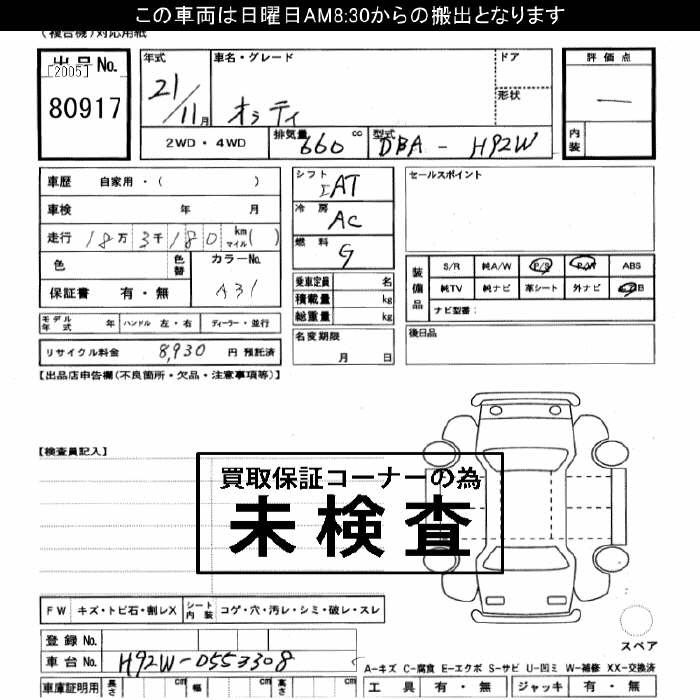 この車両は日曜日AM8:30からの搬出となります
(複合機)対応用紙
出品No.
[2005]
80917
年式 21/11月
車名・グレード オッティ
ドア
形状
評価点 一
内装
2WD・4WD
排気量 660 cc
型式 DBA-H92W
車歴 自家用・( )
車検 年 月
走行 18万 3千180 km マイル( )
色 色替 カラーNo.
保証書 有・無 A31
モデル年式 年 ハンドル 左・右 ディーラー・並行
リサイクル料金 8,930 円 預託済
シフト IAT
冷房 AC
燃料 G
乗車定員 名
積載量 kg
総重量 kg
名変期限
月 日
セールスポイント
装備品
S/R 純A/W P/S P/W ABS
純TV 純ナビ 革シート 外ナビ B
ナビ型番:
後日品
【出品店申告欄(不良箇所・欠品・注意事項等)】
【検査員記入】
買取保証コーナーの為
未検査
FW キズ・トビ石・割レX シート内装 コゲ・穴・汚レ・シミ・破レ・スレ
登録No.
車台No. H92W-0553308
車庫証明用 長さ cm 幅 cm 高さ cm
スペア
A-キズ C-腐食 E-エクボ S-サビ U-凹ミ W-補修 XX-交換済
工具 有・無 ジャッキ 有・無